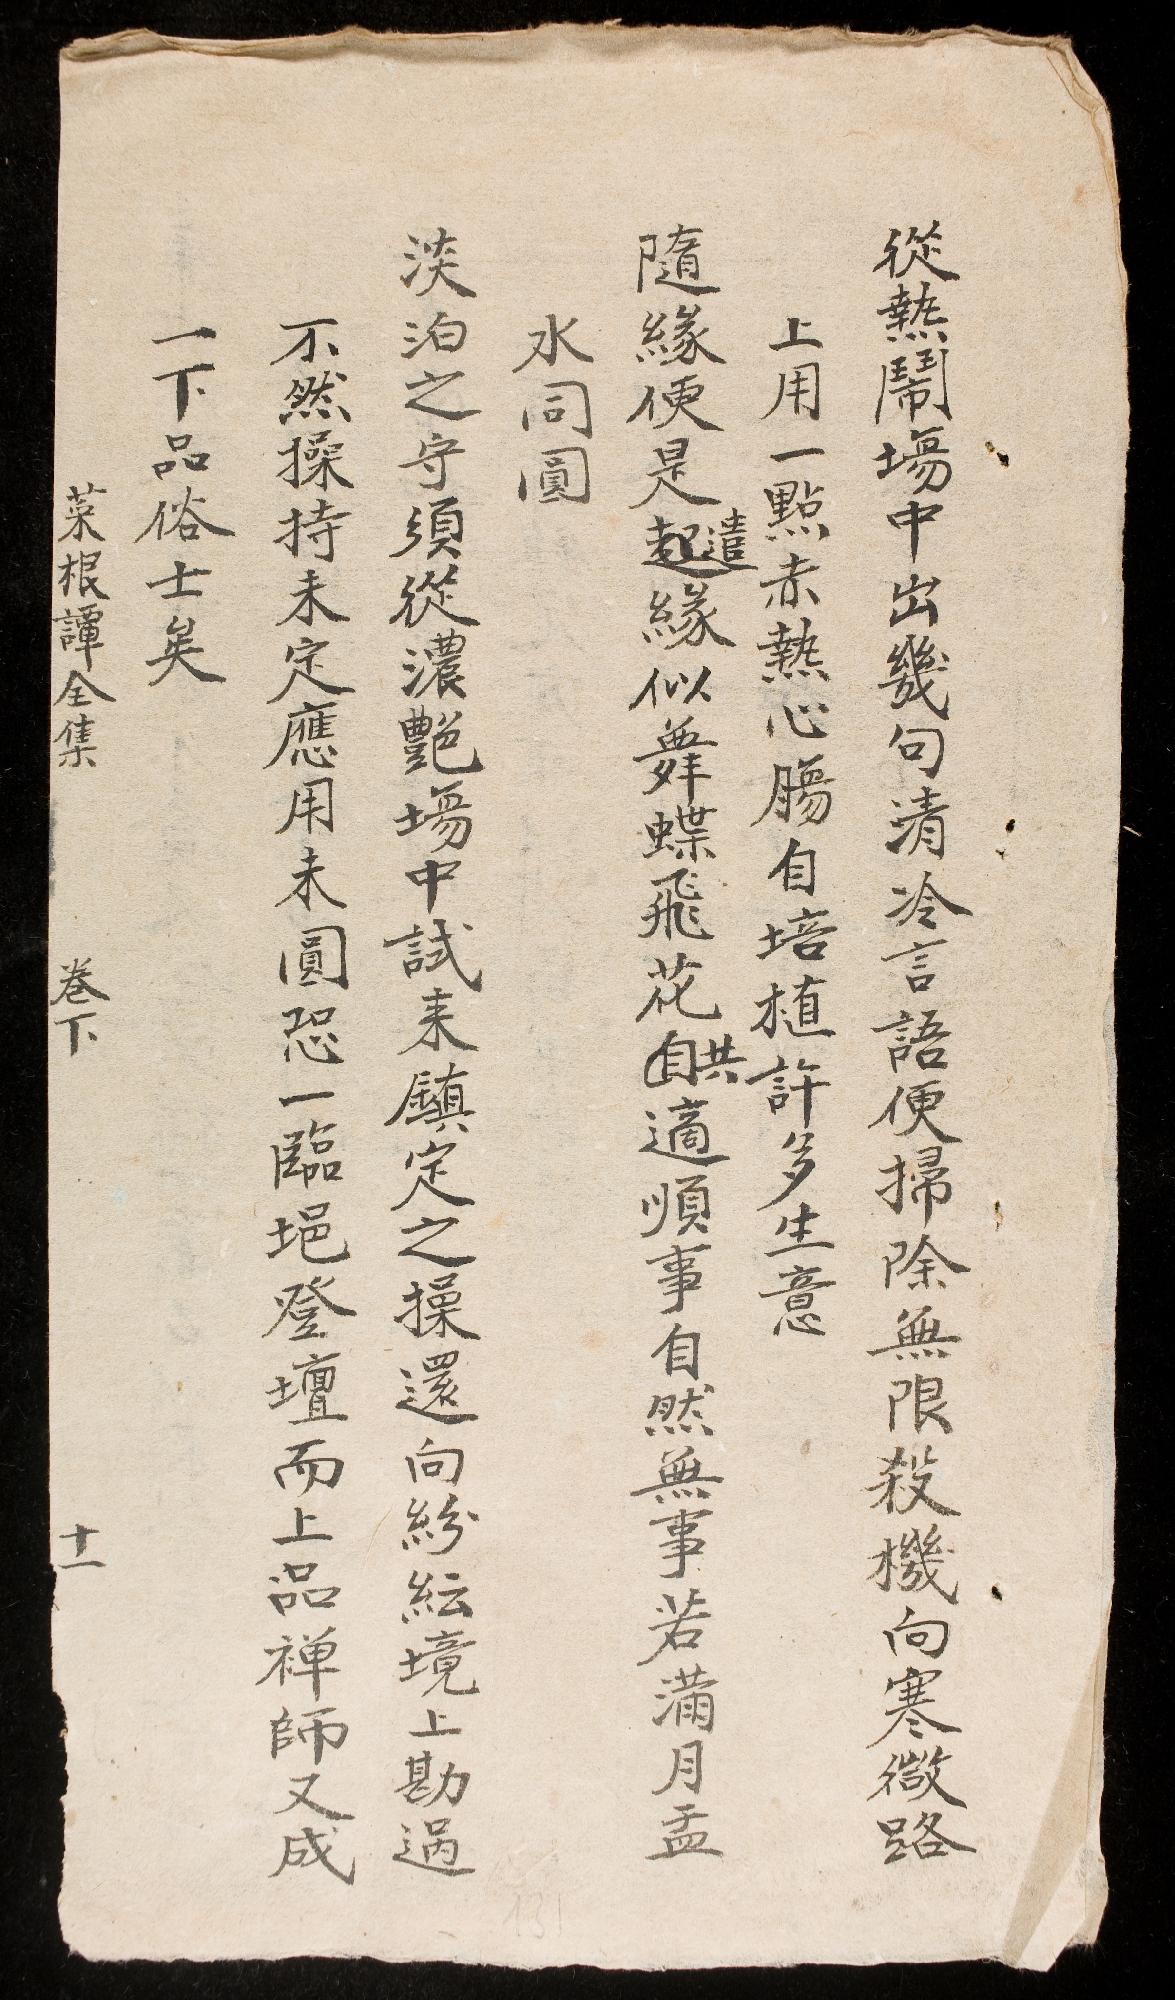 從熱鬧場中出幾句清冷言語便掃除無限殺機向寒微路
上用一點赤熱心腸自培植許多生意
隨緣便是遣緣似舞蝶飛花共適順事自然無事若滿月盂
水同圓
淡泊之守須從濃艷場中試来鎮定之操還向紛紜境上勘過
不然操持未定應用未圓恐一臨塏登壇而上品禅師又成
一下品俗士矣
菜根譚全集 卷下 十一
131